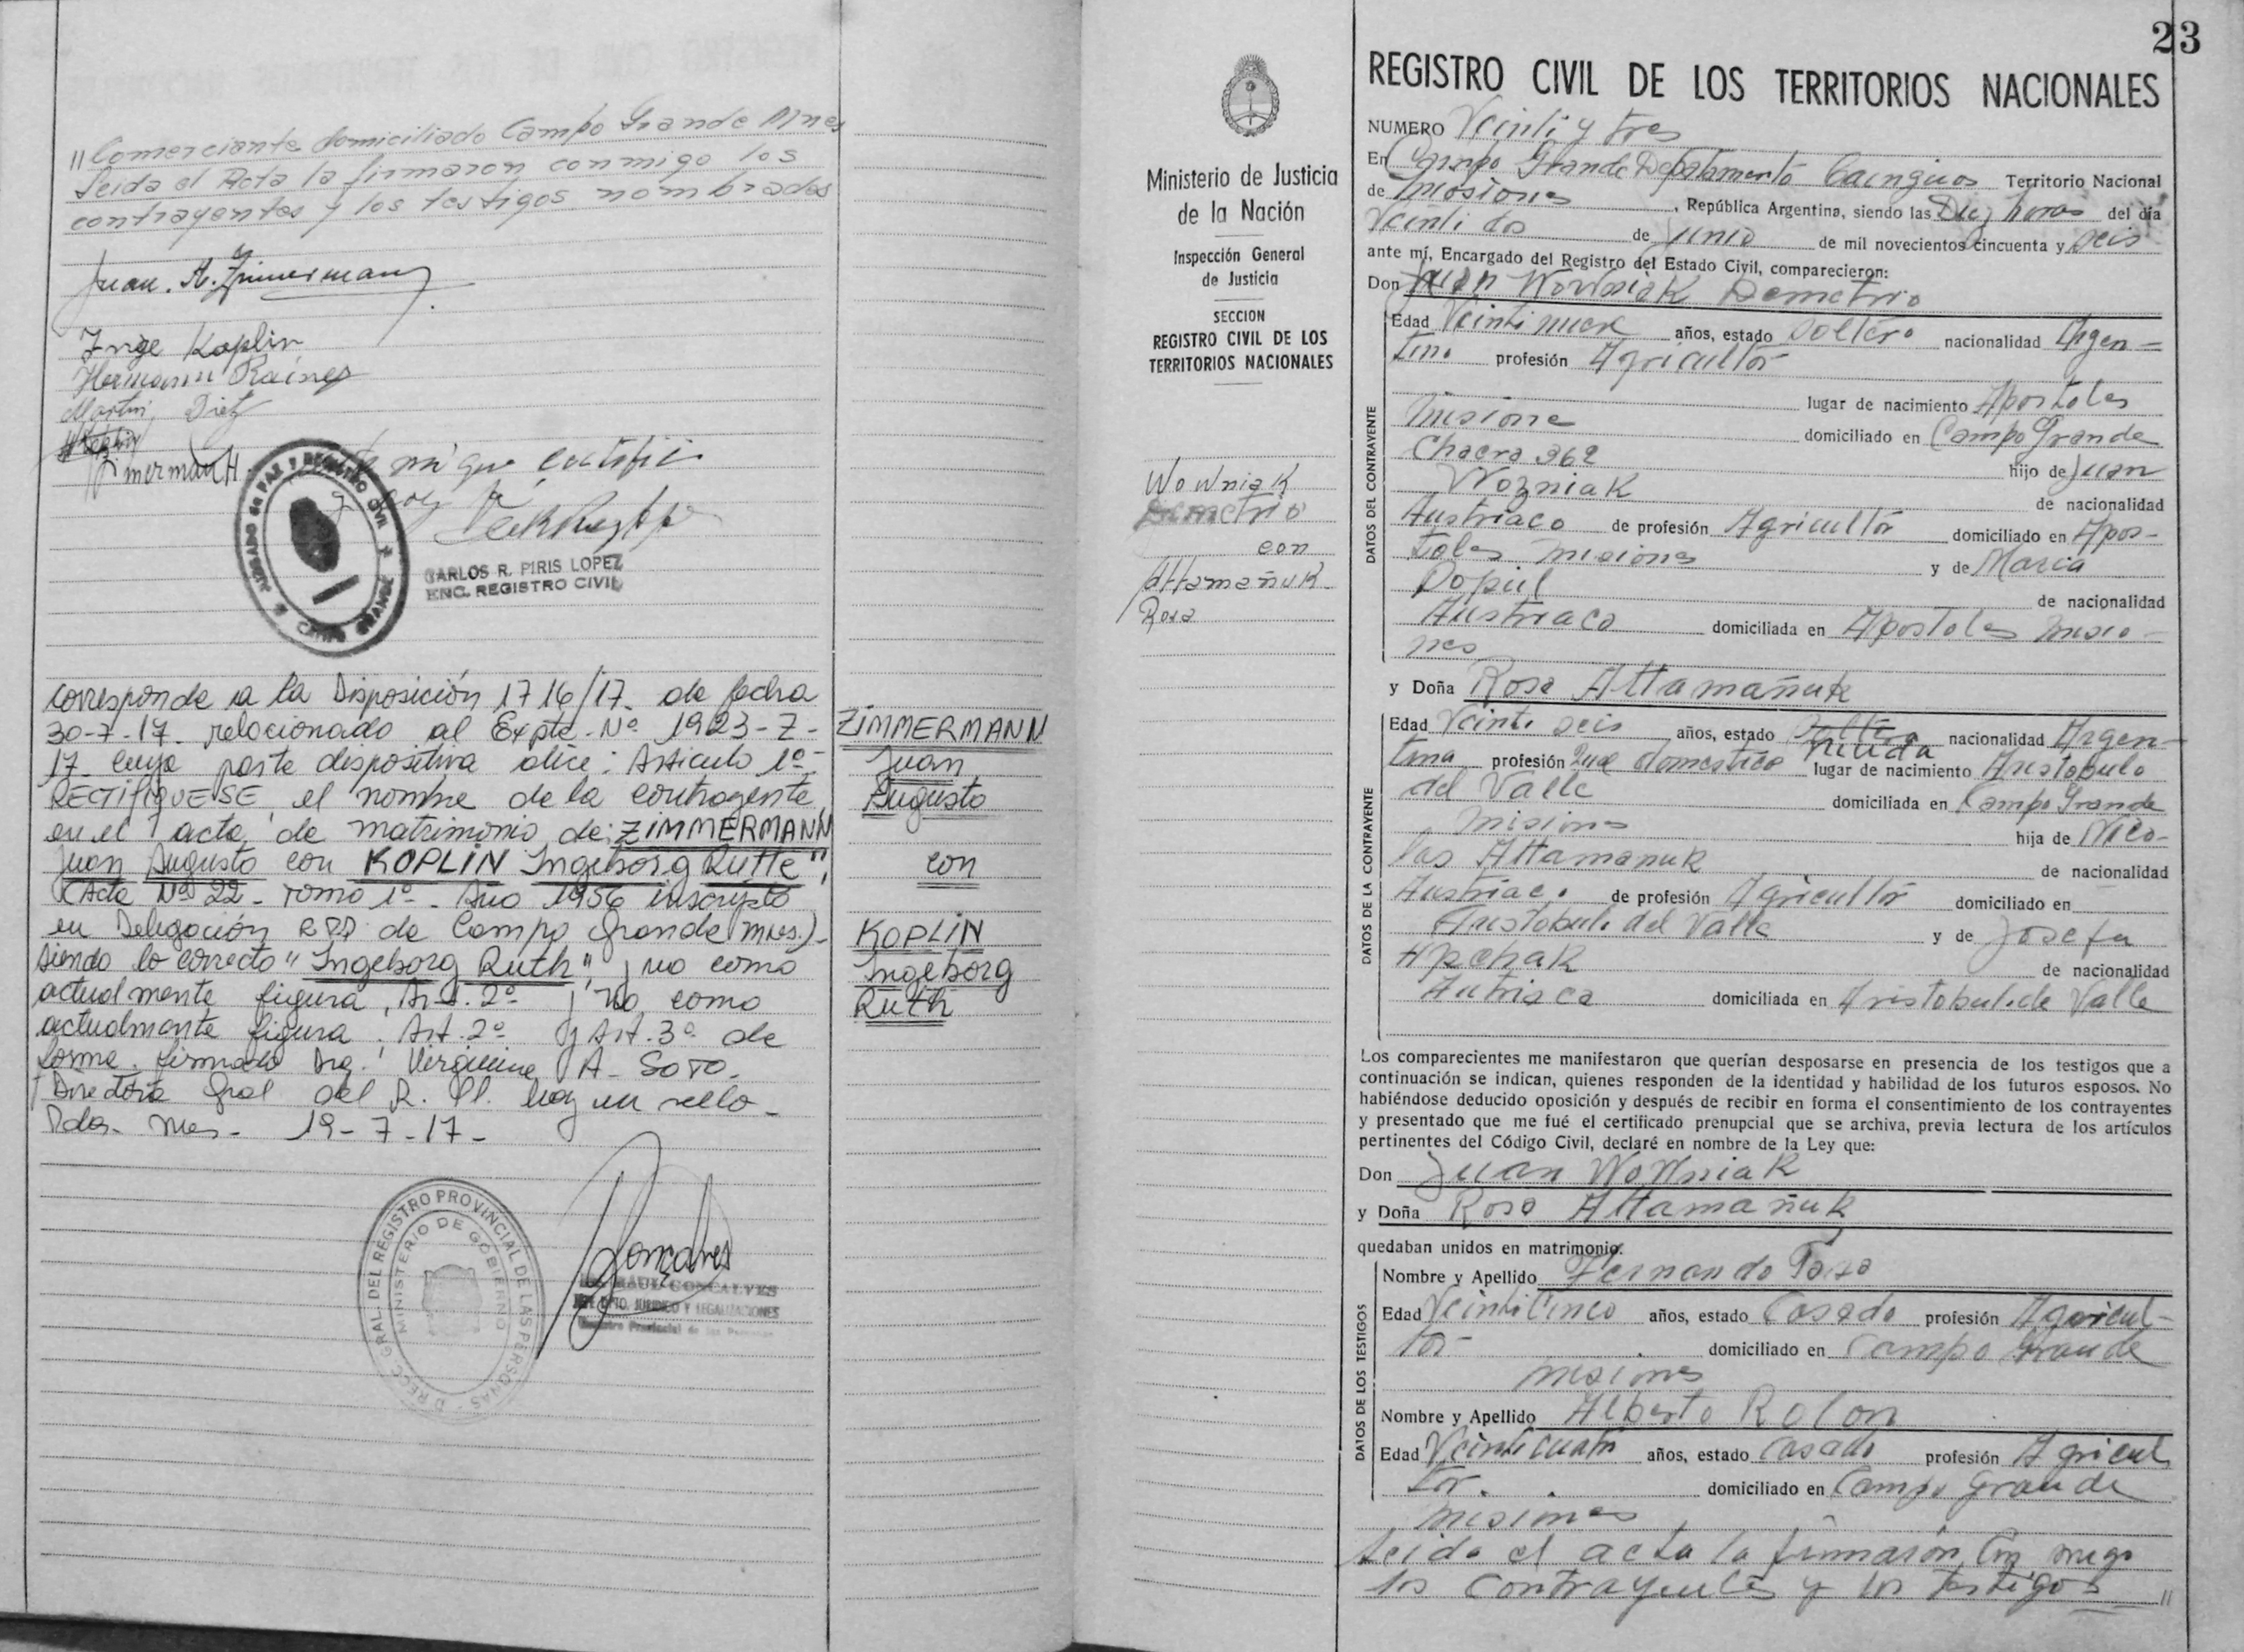 // Comerciante domiciliado Campo Grande Mnes
Leida el Acta la firmaron conmigo los
contrayentes y los testigos nombrados
Juan. A. Zimmermann
Inge Koplin
Hermann Raines
Martin Dietz
Zimerman H.
mi que certifico
JUZGADO DE PAZ Y REGISTRO CIVIL
CAMPO GRANDE
CARLOS R. PIRIS LOPEZ
ENC. REGISTRO CIVIL
corresponde a la Disposición 1716/17. de fecha
30-7-17. relacionado al Expte. Nº 1923-Z-
17. cuya parte dispositiva dice: Articulo 1º-
RECTIFIQUESE el nombre de la contrayente
en el acta de matrimonio de: ZIMMERMANN
Juan Augusto con KOPLIN Ingeborg Rutte",
(Acta Nº 22 - Tomo 1º - Año 1956 inscripto
en Delegación RPP de Campo Grande Mnes.)-
siendo lo correcto "Ingeborg Ruth", y no como
actualmente figura, Art. 2º y no como
actualmente figura. Art. 2º y Art. 3º de
forme. firmado A. SOTO-
Directora Gral del R. hay un sello-
Pdas. Mnes- 19-7-17-
ZIMMERMANN
Juan
Augusto
con
KOPLIN
Ingeborg
Ruth
DIRECC. GRAL. DEL REGISTRO PROVINCIAL DE LAS PERSONAS
MINISTERIO DE GOBIERNO
Goncalves
RAUL GONCALVES
DPTO. JURIDICO Y LEGALIZACIONES
Registro Provincial de las Personas
23
Ministerio de Justicia
de la Nación
Inspección General
de Justicia
SECCION
REGISTRO CIVIL DE LOS
TERRITORIOS NACIONALES
Wowniak
Demetrio
con
Attamañuk
Rosa
REGISTRO CIVIL DE LOS TERRITORIOS NACIONALES
NUMERO Veinti y tres
En Campo Grande Departamento Cainguas Territorio Nacional
de Misiones, República Argentina, siendo las Diez horas del día
Veinti dos de junio de mil novecientos cincuenta y seis
ante mí, Encargado del Registro del Estado Civil, comparecieron:
Don Juan Wowniak Demetrio
DATOS DEL CONTRAYENTE
Edad Veinti nueve años, estado Soltero nacionalidad Argen-
tino profesión Agricultor
lugar de nacimiento Apostoles
Misione domiciliado en Campo Grande
Chacra 262 hijo de Juan
Wozniak de nacionalidad
Austriaco de profesión Agricultor domiciliado en Apos-
toles Misiones y de Maria
Dopiul de nacionalidad
Austriaca domiciliada en Apostoles Misio-
nes
y Doña Rosa Attamañuk
DATOS DE LA CONTRAYENTE
Edad Veinti seis años, estado Soltera viuda nacionalidad Argen-
tina profesión Que domestico lugar de nacimiento Aristobulo
del Valle domiciliada en Campo Grande
Misiones hija de Nico-
las Attamanuk de nacionalidad
Austriaco de profesión Agricultor domiciliado en
Aristobulo del Valle y de Josefa
Apchak de nacionalidad
Autriaca domiciliada en Aristobulo de Valle
Los comparecientes me manifestaron que querían desposarse en presencia de los testigos que a
continuación se indican, quienes responden de la identidad y habilidad de los futuros esposos. No
habiéndose deducido oposición y después de recibir en forma el consentimiento de los contrayentes
y presentado que me fué el certificado prenupcial que se archiva, previa lectura de los artículos
pertinentes del Código Civil, declaré en nombre de la Ley que:
Don Juan Wowniak
y Doña Rosa Attamañuk
quedaban unidos en matrimonio.
DATOS DE LOS TESTIGOS
Nombre y Apellido Fernando
Edad Veinticinco años, estado Casado profesión Agricul-
tor domiciliado en Campo Grande
Misiones
Nombre y Apellido Alberto Rolon
Edad Veinticuatro años, estado Casado profesión Agricul
tor. domiciliado en Campo Grande
Misiones
Leida el acta la firmaron con migo
los contrayentes y los testigos //